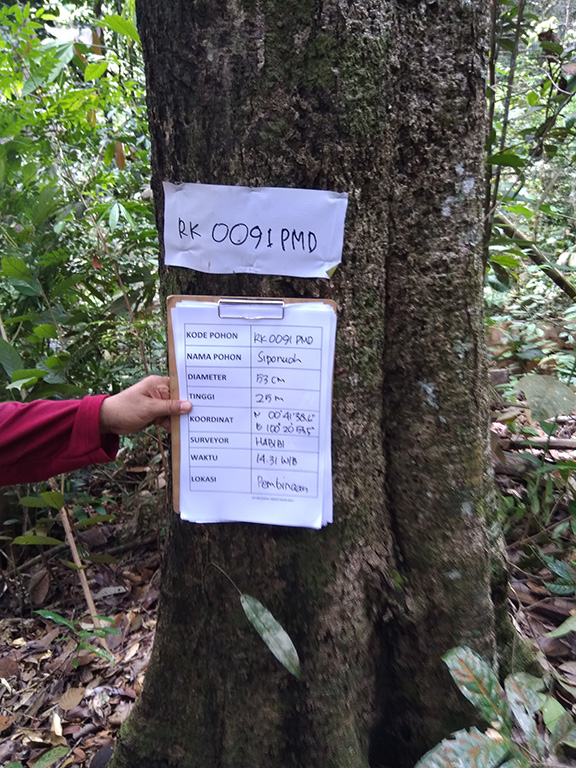 RK 0091 PMD
KODE POHON RK 0091 PMD
NAMA POHON Siponuoh
DIAMETER 53 cm
TINGGI 25 m
KOORDINAT N 00°41'38.6"
E 100°20'53.5"
SURVEYOR HABIBI
WAKTU 14.31 WIB
LOKASI Pembinaan